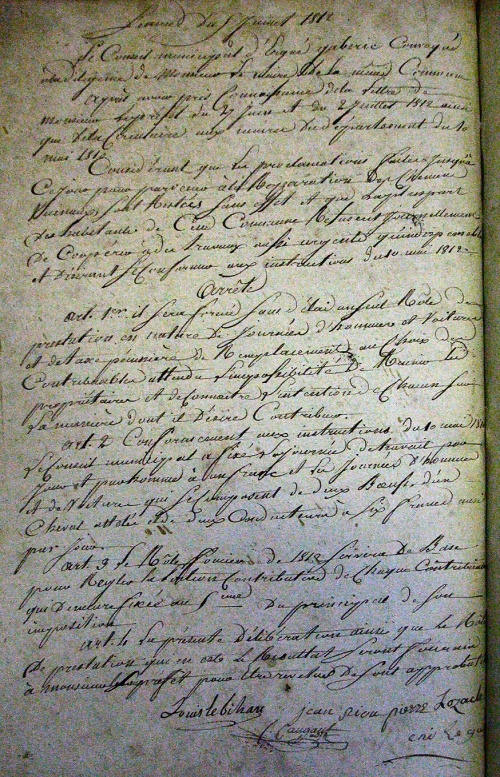 du 5 Juillet 1812
Le Conseil municipal d'Ergué gaberic Convoqué
a la diligence de Monsieur le maire de la même Commune
après avoir pris Connaissance de la lettre de
monsieur le préfet du 27 Juin et du 2 Juillet 1812 ainsi
que de la Circulaire aux maires du département du 10
mai 1812
Considérant que les proclamations faites jusqu'à
Ce jour pour parvenir à la Reparation Des Chemins
Vicinaux sont Restées sans effet et que la plus part
Des habitants de Cette Commune Refusent formellement
de Coopérer à des travaux aussi urgents qu'indispensables
et Désirant se Conformer aux instructions du 10 mai 1812
Arrête
art. 1er. il sera formé sans délai un seul Rôle de
prestation en nature de Journées d'hommes et Voitures
et de taxe pécuniaire de Remplacement au Choix des
Contribuables attendu l'impossibilité de Réunir les
propriétaires et de Connaitre l'intention de Chacun sur
la manière dont il Désire Contribuer.
art. 2 Conformément aux instructions du 10 mai 1812
le Conseil municipal a fixé la Journée de travail par
Jour et par homme à un franc et la Journée d'homme
et de Voiture qui se Composent de deux Bœufs d'un
Cheval attelés et de deux Conducteurs à Six francs aussi
par jour.
art. 3 le Rôle foncier de 1812 servira De Base
pour Régler la portion Contributive de Chaque Contribuable
qui Demeure fixée au 5ème Du principal de son
imposition.
art. 4 la présente Délibération ainsi que le Rôle
De prestation qui en est le Résultat seront fournis
à monsieur le préfet pour être revêtus De son approbation
Louis le bihan jean riou pierre Lozach